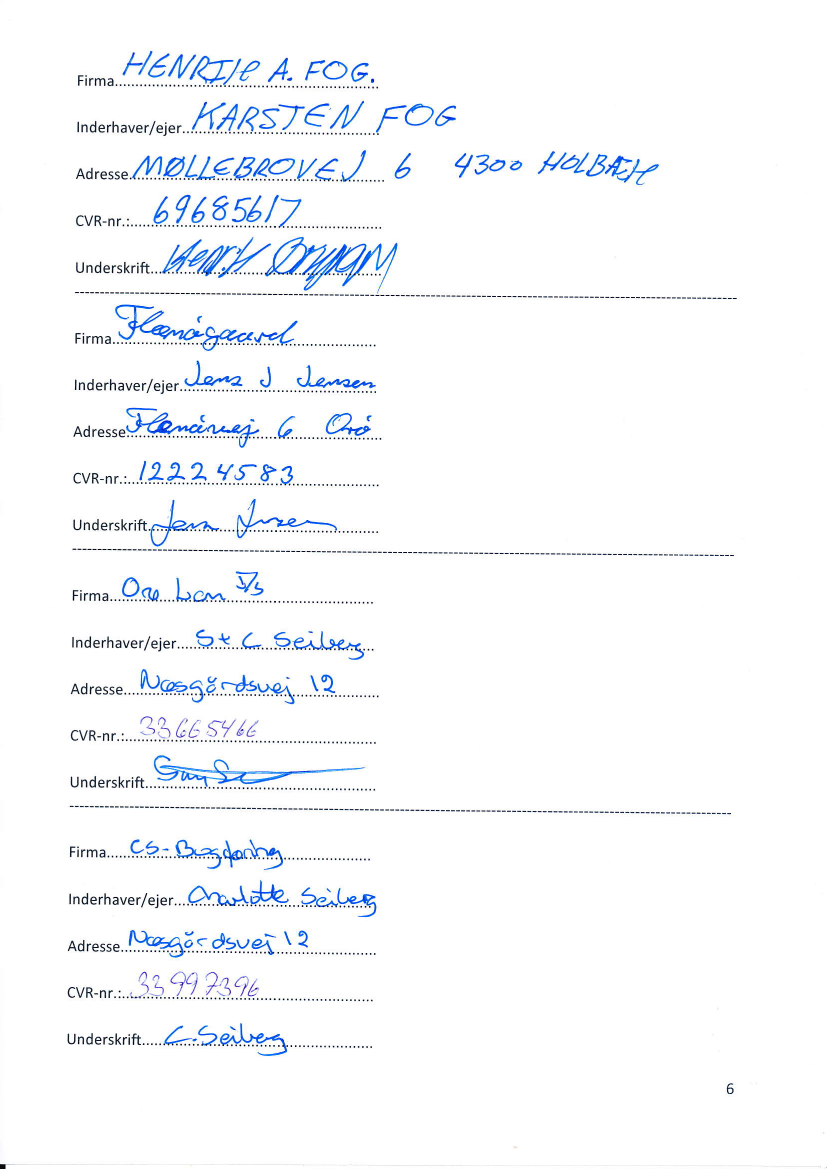 Firma HENRIK A. FOG.
Inderhaver/ejer KARSTEN FOG
Adresse MØLLEBROVEJ 6 4300 HOLBÆK
CVR-nr.: 69685617
Underskrift
Firma Flænågaard
Inderhaver/ejer Jens J Jensen
Adresse Flænåvej 6 Orø
CVR-nr.: 12224583
Underskrift Jens Jensen
Firma Orø Lam I/S
Inderhaver/ejer S + C Seiberg
Adresse Næsgårdsvej 12
CVR-nr.: 33665466
Underskrift
Firma CS-Bogføring
Inderhaver/ejer Charlotte Seiberg
Adresse Næsgårdsvej 12
CVR-nr.: 33997396
Underskrift C. Seiberg
6